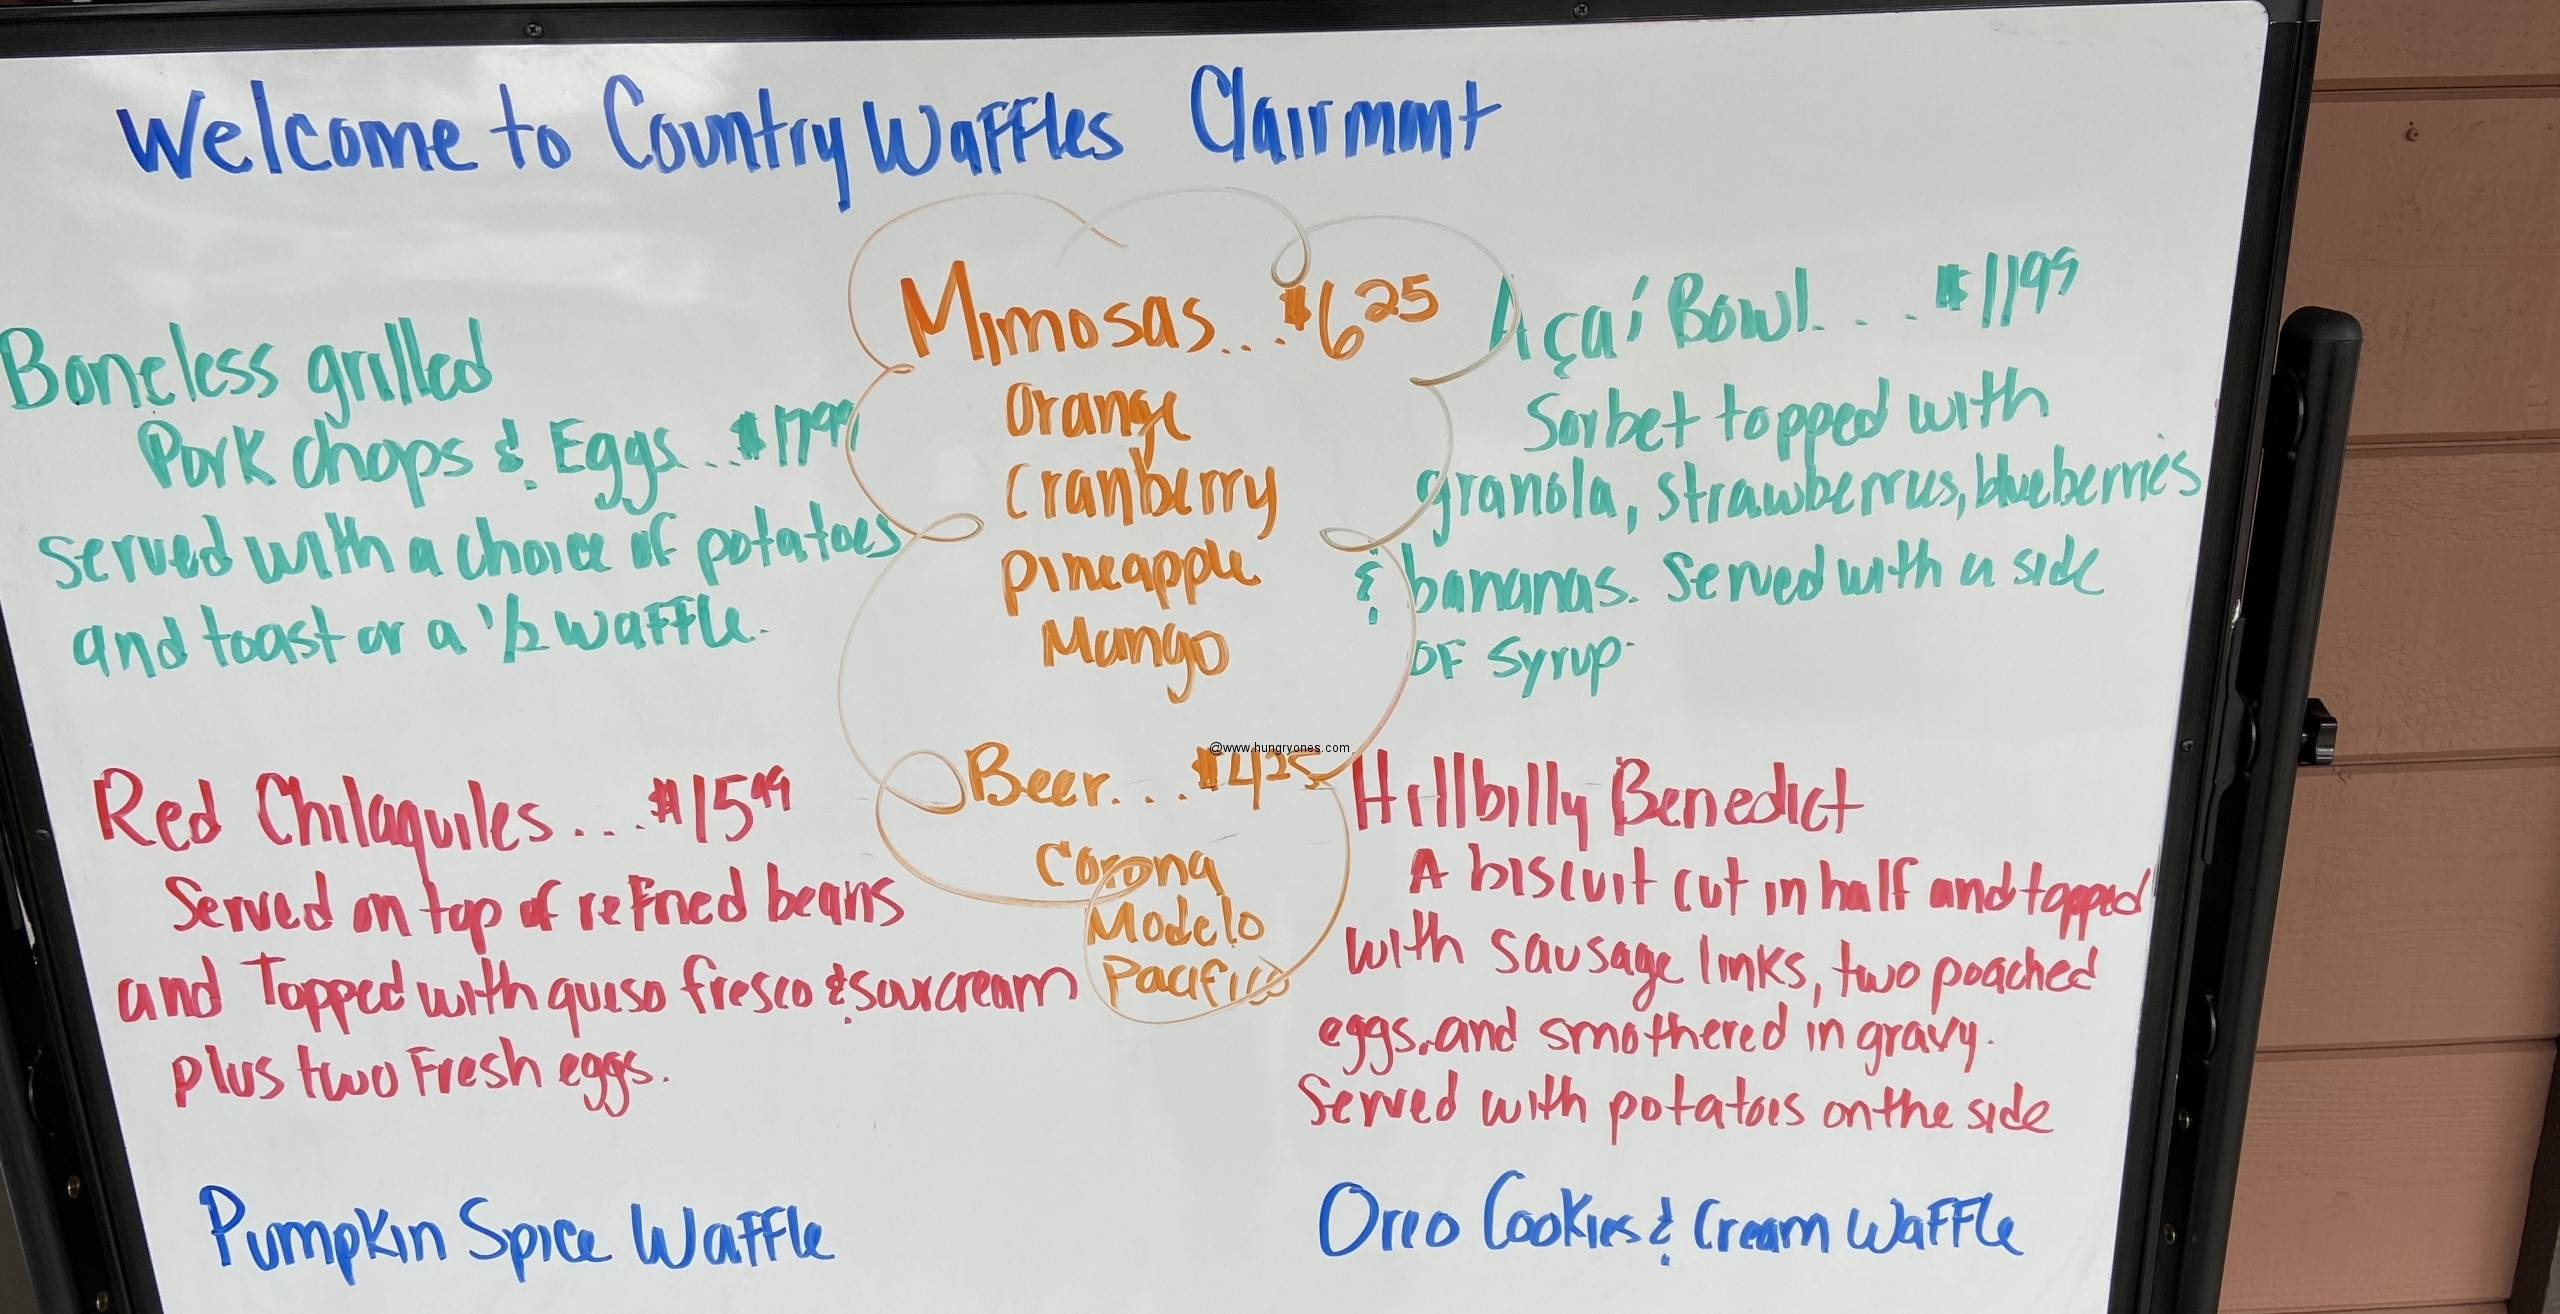 Welcome to Country Waffles Clairmont
Boneless grilled
Pork chops & Eggs...$17.99
served with a choice of potatoes
and toast or a 1/2 waffle.
Mimosas...$6.25
Orange
Cranberry
Pineapple
Mango
Beer....$4.25
Corona
Modelo
Pacifico
Açaí Bowl....$11.99
Sorbet topped with
granola, strawberries, blueberries
& bananas. Served with a side
of syrup.
Red Chilaquiles...$15.99
Served on top of refried beans
and Topped with queso fresco & sour cream
plus two Fresh eggs.
Hillbilly Benedict
A biscuit cut in half and topped
with sausage links, two poached
eggs, and smothered in gravy.
Served with potatoes on the side
Pumpkin Spice Waffle
Oreo Cookies & Cream Waffle
@www.hungryones.com